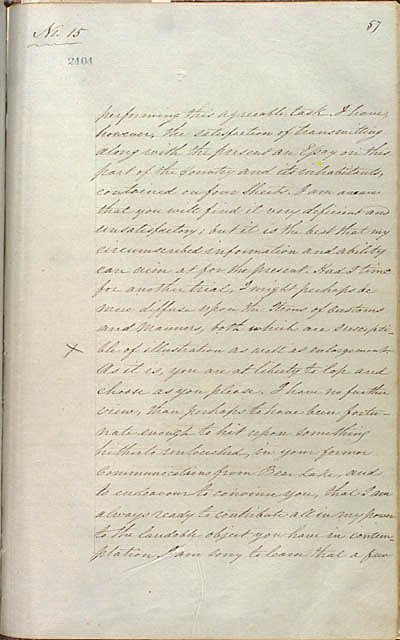 No. 15
87
2404
performing this agreeable task I have,
however, the satisfaction of transmitting
along with the present an Essay on this
part of the Country and its inhabitants,
contained in four Sheets. I am aware
that you will find it very deficient and
unsatisfactory; but it is the best that my
circumscribed information and ability
can aim at for the present. Had I time
for another trial, I might perhaps be
more diffuse upon the Items of Customs
and Manners, both which are suscepti-
ble of illustration as well as enlargement
As it is, you are at liberty to lop and
choose as you please. I have no further
view, than perhaps to have been fortu-
nate enough to hit upon something
hitherto untouched, in your former
Communications from Bear Lake, and
to endeavour to convince you, that I am
always ready to contribute all in my power
to the laudable object you have in contem-
plation I am sorry to learn that a few